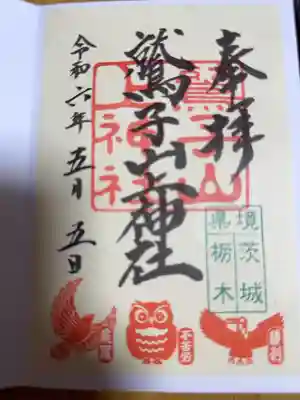 奉拝
鷲子山上神社
令和六年五月五日
鷲子山上神社
境
県
茨城
栃木
不苦労